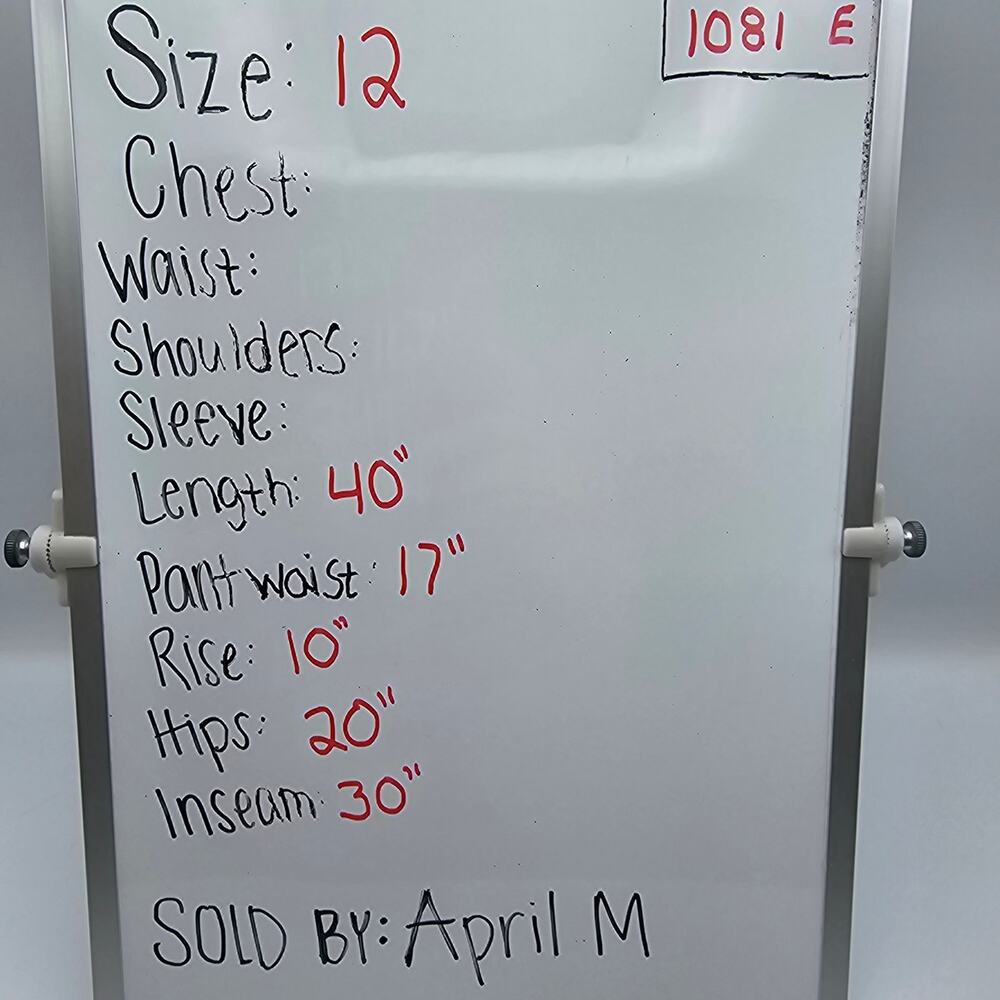 Size: 12
1081 E
Chest:
Waist:
Shoulders:
Sleeve:
Length: 40"
Pant waist: 17"
Rise: 10"
Hips: 20"
Inseam: 30"
SOLD BY: April M